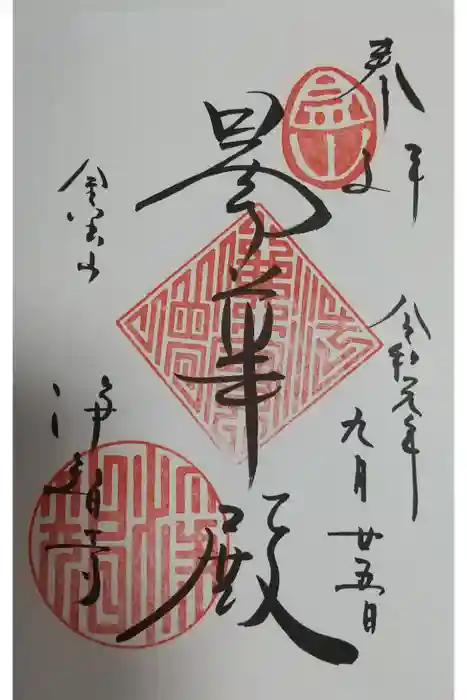 奉拝
令和元年
九月廿五日
曇華殿
金宝山
浄智寺